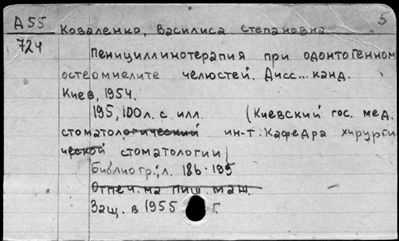 5
А55 Коваленко, Василиса Степановна
724
Пенициллинотерапия при одонтогенном
остеомиелите челюстей. Дисс... канд.
Киев, 1954.
195, 100л. с илл. (Киевский гос. мед.
стоматологический ин-т. Кафедра хирурги
ческой стоматологии)
Библиогр.: л. 186-195
Отпеч. на пиш. маш.
Защ. в 1955 г.